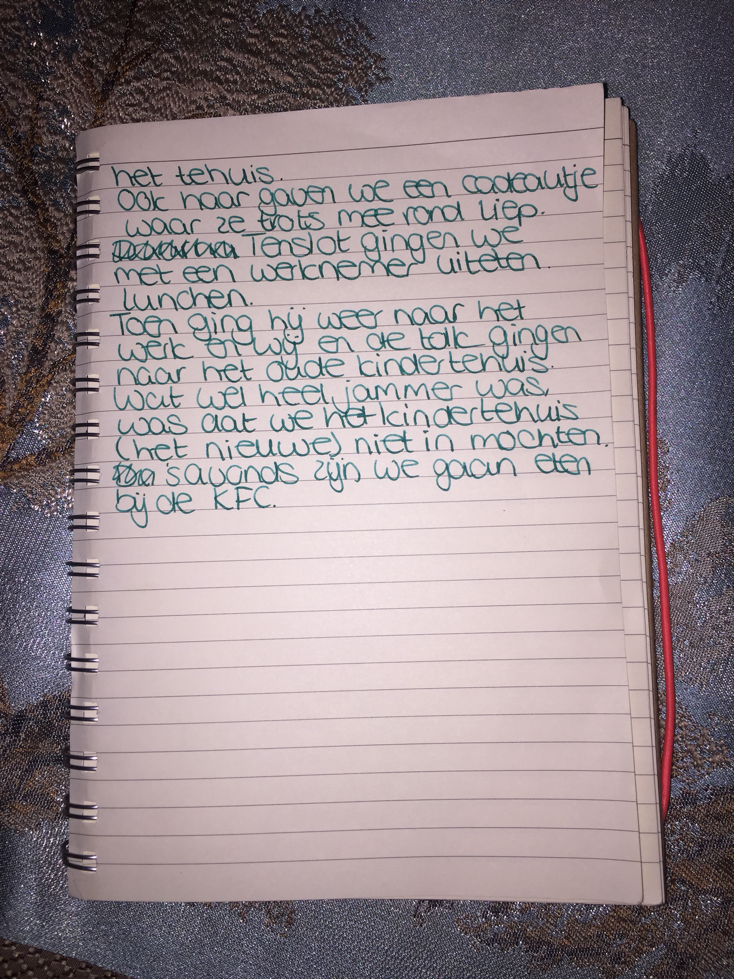 het tehuis.
Ook haar gaven we een cadeautje
waar ze trots mee rond liep.
Tenslot gingen we
met een werknemer uiteten.
lunchen.
Toen ging hij weer naar het
werk en wij en de tolk gingen
naar het oude kindertehuis.
Wat wel heel jammer was,
was dat we het kindertehuis
(het nieuwe) niet in mochten.
's avonds zijn we gaan eten
bij de KFC.